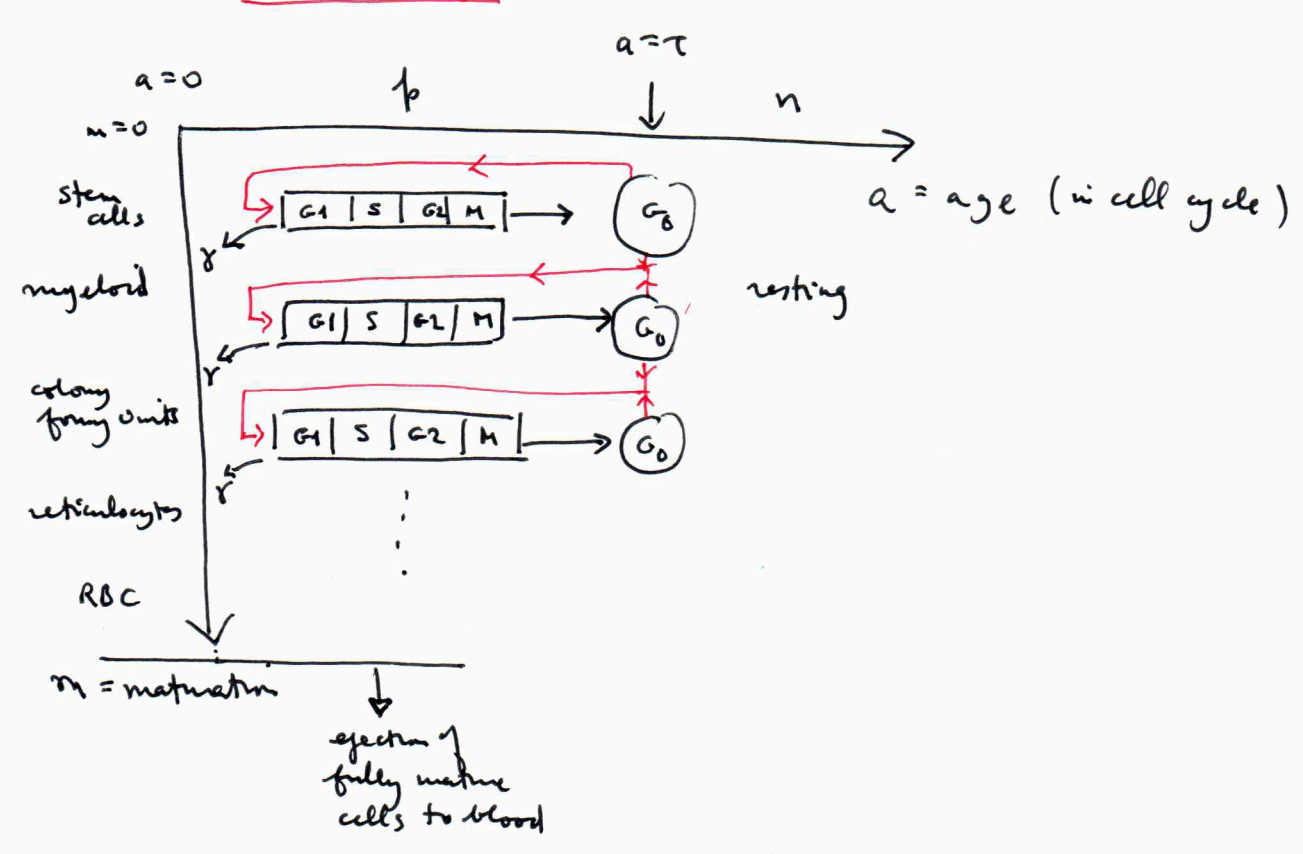 a = τ
a = 0
p
n
m = 0
a = age (in cell cycle)
stem
cells
G1 S G2 M
G0
γ
myeloid
resting
G1 S G2 M
G0
γ
colony
forming units
G1 S G2 M
G0
γ
reticulocytes
RBC
m = maturation
ejection of
fully mature
cells to blood